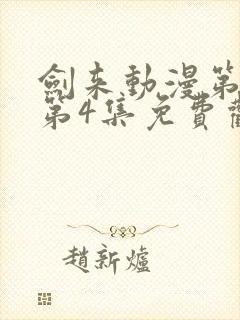 劍来動漫第
第4集免費觀
趙新爐